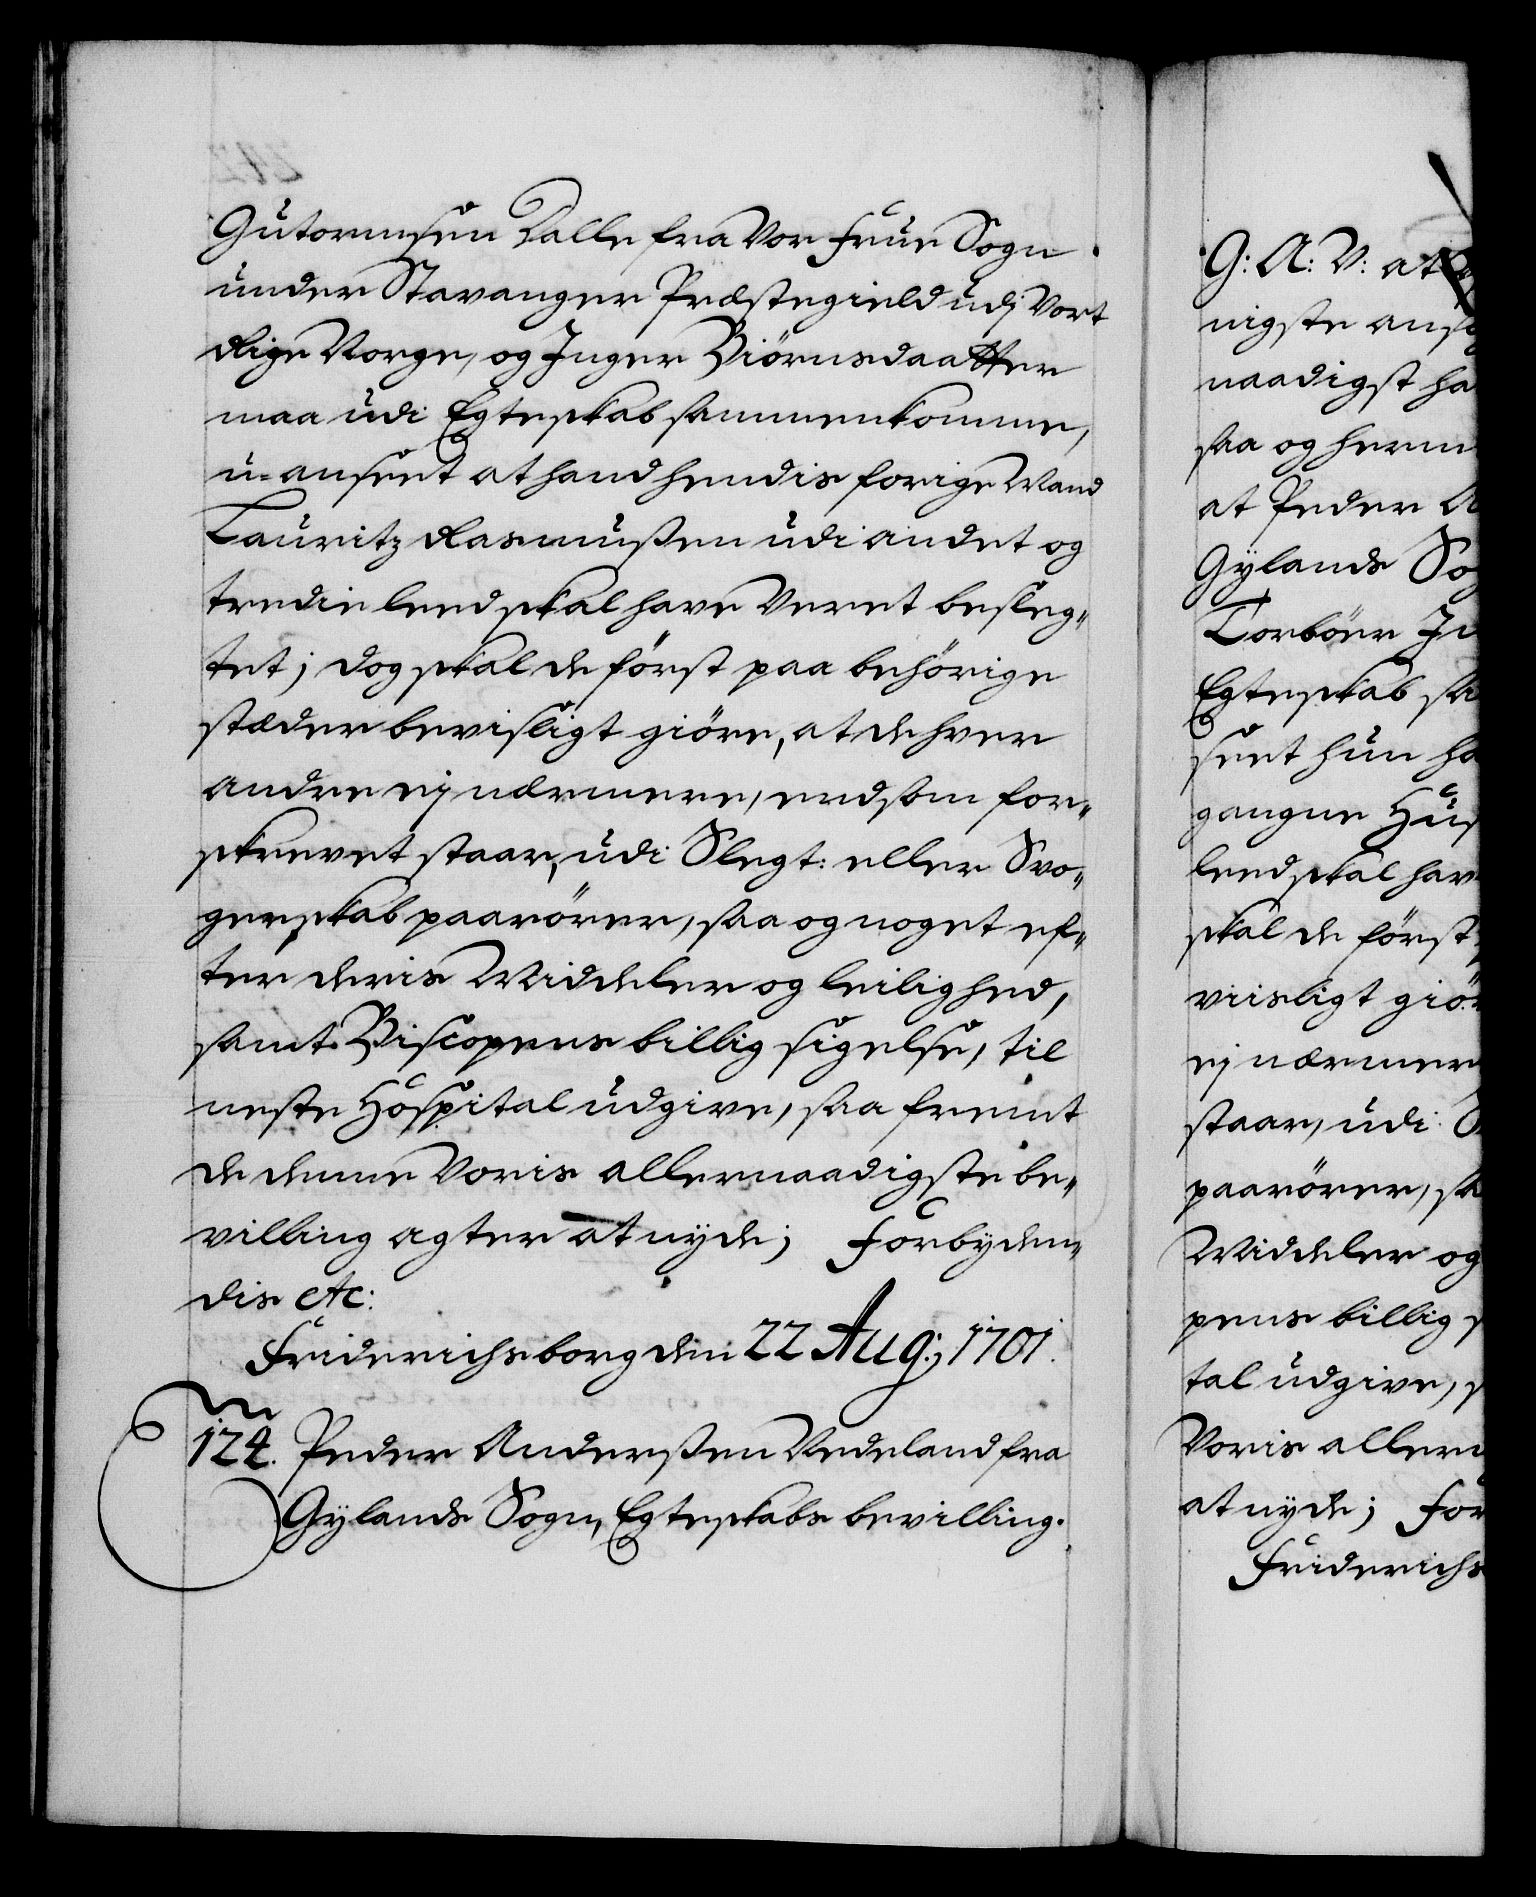 Gutormsen Dalle fra Vor Frue Sogn
under Stavanger Præstegield udj Vort
Rige Norge, og Inger Biörnsdaatter
maa udi Egteskab sammenkomme,
u-anseet at hand hendis forige Mand
Lauritz Rasmussen udi andet og
tredie leed skal have veret besleg-
tet; dog skal de först paa behörige
stæder bevisligt giöre, at de hver
andre ej nærmere, end som for-
skrevet staar, udi Slegt: eller Svo-
gerskab paarörer, saa og noget ef-
ter deris Middeler og leilighed,
samt Biscopens billig sigelse, til
neste Hospital udgive, saa fremt
de denne Voris allernaadigste be-
villing agter at nyde; Forbyden-
dis etc:
Friderichsborg den 22 Aug: 1701.
124. Peder Anderssen Vedeland fra
Gylands Sogn, Egteskabs bevilling.
G: A: V: at
nigste ans
naadigst ha
saa og herm
at Peder A
Gylands So
Torböer In
Egteskab sa
seet hun ha
gangne Hus
leed skal hav
skal de först
viisligt giör
ej nærmer
staar, udi S
paarörer, sa
Middeler og
pens billig s
tal udgive, s
Voris allern
at nyde; For
Friderichs